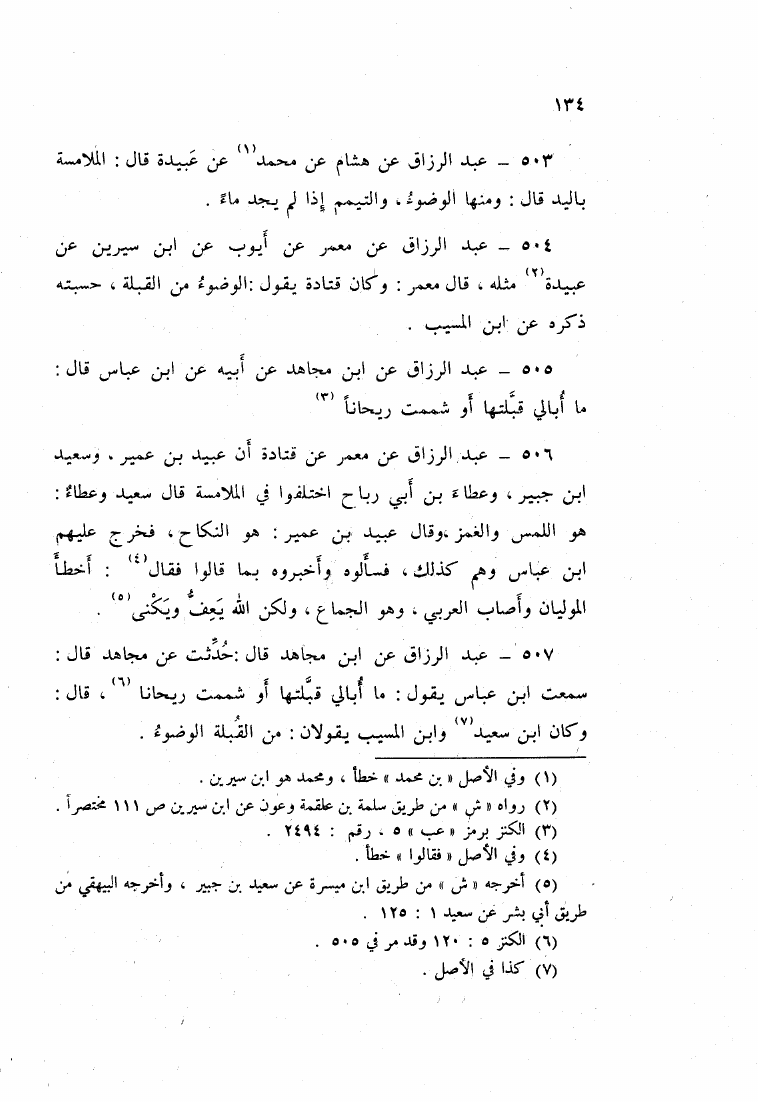 ١٣٤
٥٠٣ – عبد الرزاق عن هشام عن محمد(١) عن عَبيدة قال : الملامسة
باليد قال : ومنها الوضوءُ ، والتيمم إذا لم يجد ماءً .
٥٠٤ – عبد الرزاق عن معمر عن أيوب عن ابن سيرين عن
عبيدة(٢) مثله ، قال معمر : وكان قتادة يقول :الوضوءُ من القبلة ، حسبته
ذكره عن ابن المسيب .
٥٠٥ – عبد الرزاق عن ابن مجاهد عن أبيه عن ابن عباس قال :
ما أُبالي قبَّلتها أو شممت ريحاناً(٣)
٥٠٦ – عبد الرزاق عن معمر عن قتادة أن عبيد بن عمير ، وسعيد
ابن جبير ، وعطاء بن أبي رباح اختلفوا في الملامسة قال سعيد وعطاءٌ :
هو اللمس والغمز ،وقال عبيد بن عمير : هو النكاح ، فخرج عليهم
ابن عباس وهم كذلك ، فسألوه وأخبروه بما قالوا فقال(٤) : أخطأَ
الموليان وأصاب العربي ، وهو الجماع ، ولكن الله يَعِفُّ ويَكْنى(٥) .
٥٠٧ – عبد الرزاق عن ابن مجاهد قال :حُدِّثت عن مجاهد قال :
سمعت ابن عباس يقول : ما أُبالي قبَّلتها أو شممت ريحانا(٦) ، قال :
وكان ابن سعيد(٧) وابن المسيب يقولان : من القُبلة الوضوءُ .
(١) وفي الأصل « بن محمد » خطأ ، ومحمد هو ابن سيرين .
(٢) رواه « ش » من طريق سلمة بن علقمة وعون عن ابن سيرين ص ١١١ مختصراً .
(٣) الكنز برمز « عب » ٥ ، رقم : ٢٤٩٤ .
(٤) وفي الأصل « فقالوا » خطأ .
(٥) أخرجه « ش » من طريق ابن ميسرة عن سعيد بن جبير ، وأخرجه البيهقي من
طريق أبي بشر عن سعيد ١ : ١٢٥ .
(٦) الكنز ٥ : ١٢٠ وقد مر في ٥٠٥ .
(٧) كذا في الأصل .